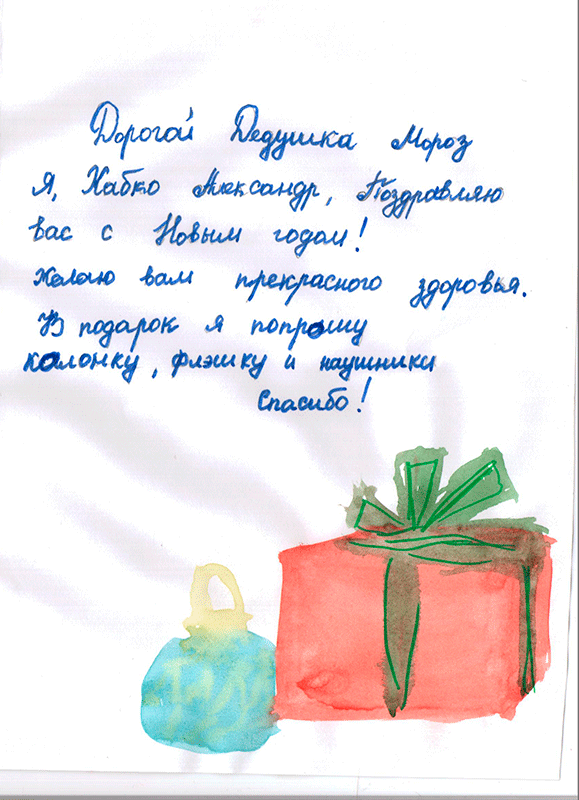 Дорогой Дедушка Мороз
Я, Хабко Александр, Поздравляю
вас с Новым годом!
Желаю вам прекрасного здоровья.
В подарок я попрошу
колонку, флэшку и наушники
Спасибо!